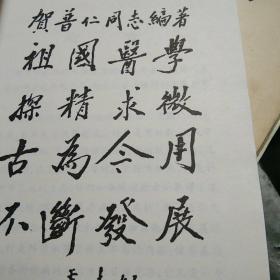 賀普仁同志編著
祖國醫學
探精求微
古為今用
不斷發展